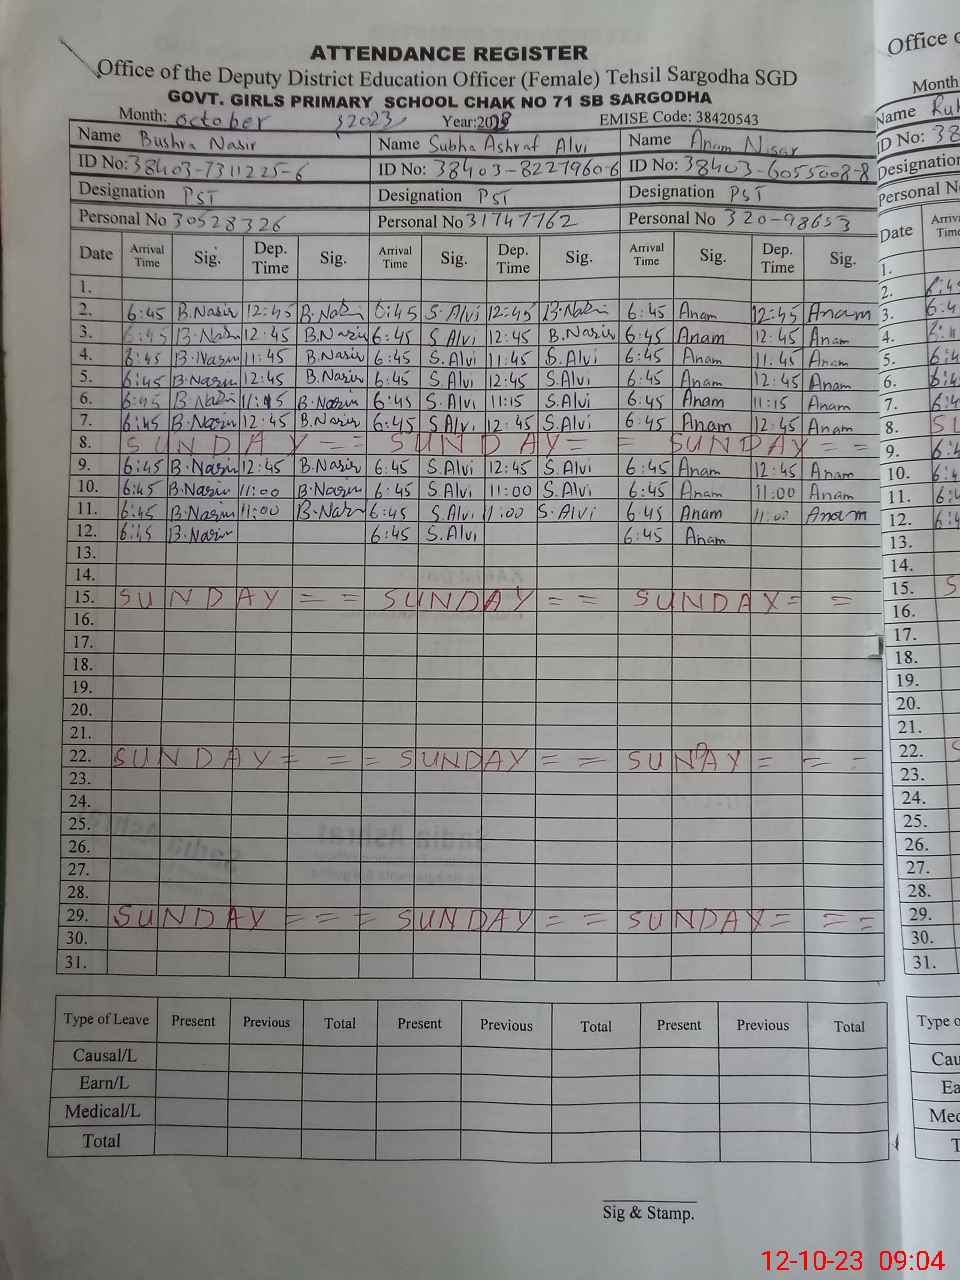 ATTENDANCE REGISTER
Office of the Deputy District Education Officer (Female) Tehsil Sargodha SGD
GOVT. GIRLS PRIMARY SCHOOL CHAK NO 71 SB SARGODHA
Month: October 2023 Year: EMISE Code: 38420543
Name Bushra Nasir Name Subha Ashraf Alvi Name Anam Nisar
ID No: 38403-7311225-6 ID No: 38403-8227960-6 ID No: 38403-6055008-8
Designation PST Designation PST Designation PST
Personal No 30528326 Personal No 31747762 Personal No 320-98653
Date Arrival Time Sig. Dep. Time Sig. Arrival Time Sig. Dep. Time Sig. Arrival Time Sig. Dep. Time Sig.
1.
2. 6:45 B.Nasir 12:45 B.Nasir 6:45 S.Alvi 12:45 B.Nasir 6:45 Anam 12:45 Anam
3. 6:45 B.Nasir 12:45 B.Nasir 6:45 S Alvi 12:45 B.Nasir 6:45 Anam 12:45 Anam
4. 6:45 B.Nasir 11:45 B.Nasir 6:45 S.Alvi 11:45 S.Alvi 6:45 Anam 11.45 Anam
5. 6:45 B.Nasir 12:45 B.Nasir 6:45 S.Alvi 12:45 S.Alvi 6:45 Anam 12:45 Anam
6. 6:45 B.Nasir B.Nasir 6:45 S.Alvi 11:15 S.Alvi 6:45 Anam 11:15 Anam
7. 6:45 B.Nasir 12:45 B.Nasir 6:45 S.Alvi 12:45 S.Alvi 6:45 Anam 12:45 Anam
8. SUNDAY = = SUNDAY = = SUNDAY = =
9. 6:45 B.Nasir 12:45 B.Nasir 6:45 S.Alvi 12:45 S.Alvi 6:45 Anam 12:45 Anam
10. 6:45 B.Nasir 11:00 B.Nasir 6:45 S.Alvi 11:00 S.Alvi 6:45 Anam 11:00 Anam
11. 6:45 B.Nasir 11:00 B.Nasir 6:45 S.Alvi 11:00 S.Alvi 6:45 Anam 11:00 Anam
12. 6:45 B.Nasir 6:45 S.Alvi 6:45 Anam
13.
14.
15. SUNDAY = = SUNDAY = = SUNDAY = =
16.
17.
18.
19.
20.
21.
22. SUNDAY = = = SUNDAY = = SUNDAY = = =
23.
24.
25.
26.
27.
28.
29. SUNDAY = = = SUNDAY = = SUNDAY = = =
30.
31.
Type of Leave Present Previous Total Present Previous Total Present Previous Total
Causal/L
Earn/L
Medical/L
Total
Sig & Stamp.
Office
Month
Name
ID No: 38
Designation
Personal N
Date
1.
2. 6:4
3. 6:4
4.
5. 6:4
6. 6:4
7. 6:4
8. SU
9. 6:4
10. 6:4
11. 6:4
12. 6:4
13.
14.
15. S
16.
17.
18.
19.
20.
21.
22. S
23.
24.
25.
26.
27.
28.
29.
30.
31.
Type o
Cau
Ea
Med
T
12-10-23 09:04